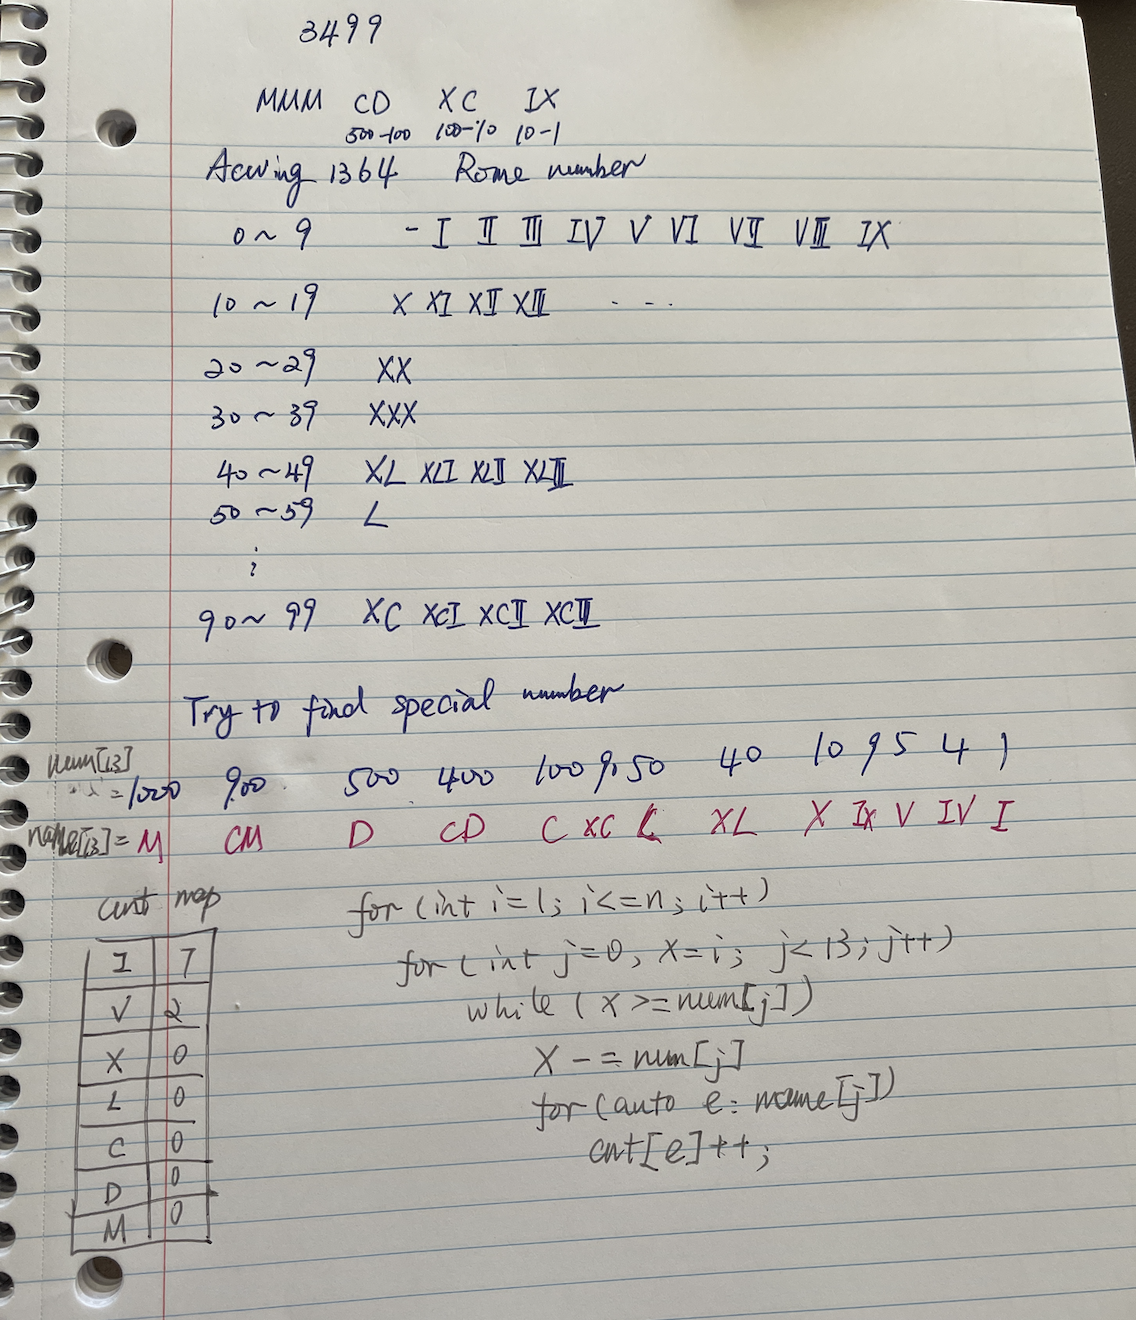 3499
MMM CD XC IX
500-100 100-10 10-1
Acwing 1364 Rome number
0~9 - I II III IV V VI VII VIII IX
10~19 X XI XII XIII ...
20~29 XX
30~39 XXX
40~49 XL XLI XLII XLIII
50~59 L
⋮
90~99 XC XCI XCII XCIII
Try to find special number
num[13]
=1000 900 500 400 100 90 50 40 10 9 5 4 1
name[13]= M CM D CD C XC L XL X IX V IV I
cnt map
I 7
V 2
X 0
L 0
C 0
D 0
M 0
for (int i=1; i<=n; i++)
for (int j=0, x=i; j<13; j++)
while (x >= num[j])
x -= num[j]
for (auto e: name[j])
cnt[e]++;